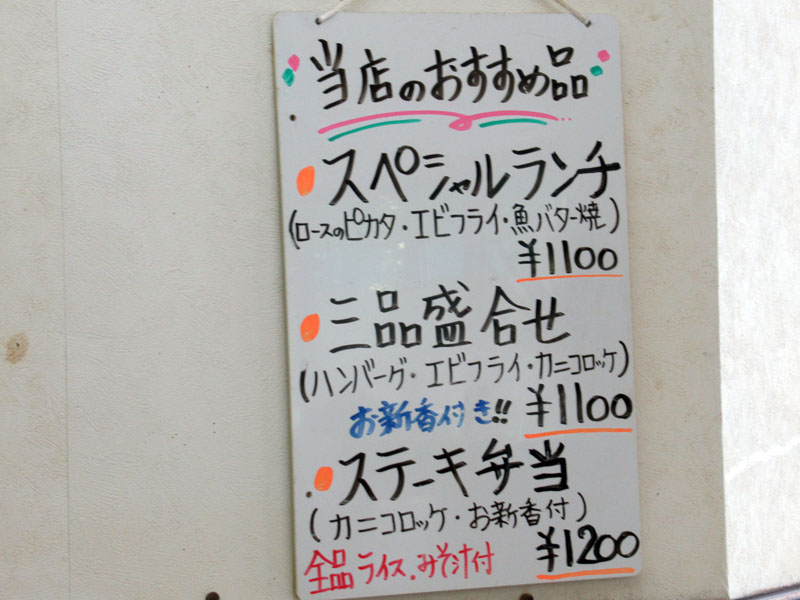 当店のおすすめ品
スペシャルランチ
(ロースのピカタ・エビフライ・魚バター焼)
¥1100
三品盛合せ
(ハンバーグ・エビフライ・カニコロッケ)
お新香付き!! ¥1100
ステーキ弁当
(カニコロッケ・お新香付)
全品ライス.みそ汁付 ¥1200